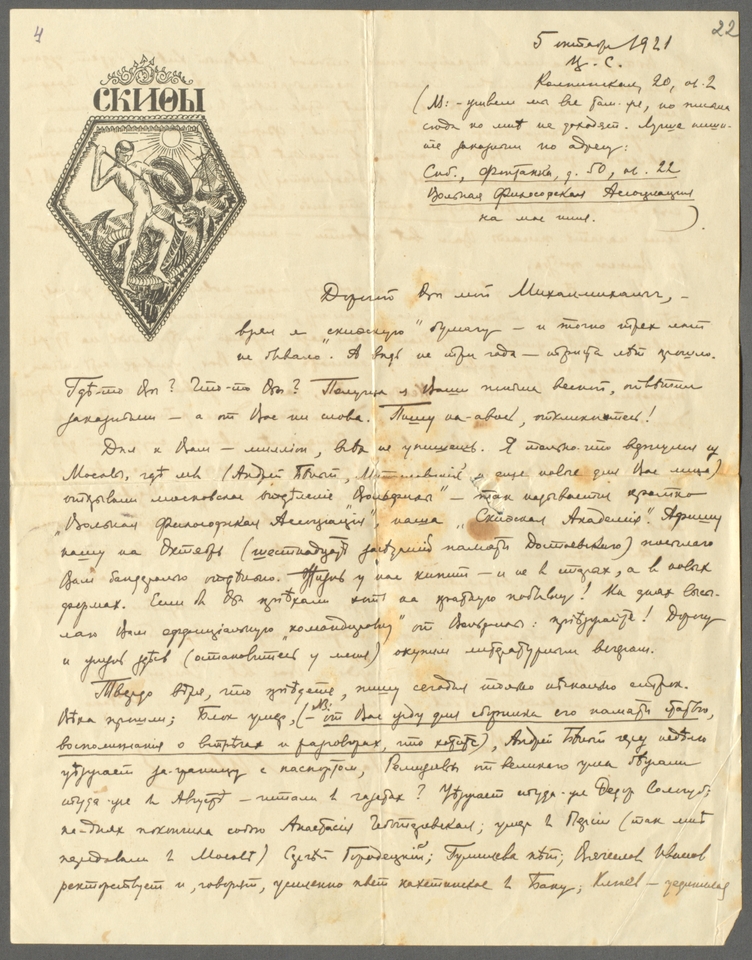 4
22
СКИѲЫ
5 октября 1921
Ц. С.
Колпинская 20, кв. 2
(М: - живем мы все там-же, но письма
сюда ко мнѣ не доходят. Лучше пиши-
те заказным по адресу:
Спб., Фонтанка, д. 50, кв. 22
Вольная Философская Ассоциация
на мое имя. )
Дорогой Вы мой Михаилмиханыч, –
взял я „скифскую" бумагу – и точно трех лет
не бывало. А ведь не три года – триста лѣт прошло.
Гдѣ-то Вы? Что-то Вы? Получил я Ваши письма весной, отвѣтил
заказным – а от Вас ни слова. Пишу на-авось, откликнитесь!
Дѣл к Вам – миллион, всѣх не упишешь. Я только-что вернулся из
Москвы, гдѣ мы (Андрей Бѣлый, и еще новые для Вас лица)
открывали московское отдѣление „Вольфилы" – так называется кратко
„Вольная Философская Ассоциация", наша „Скифская Академия". Афишу
нашу на Октябрь (шестнадцать засѣданий памяти Достоевского) посылаю
Вам бандеролью отдѣльно. Жизнь у нас кипит – и не в старых, а в новых
формах. Если б Вы приѣхали хоть на краткую побывку! На днях высы-
лаю Вам оффициальную „командировку" от Вольфилы: приѣзжайте! Дорогу
и жизнь здѣсь (остановитесь у меня) окупим литературным вечером.
Твердо вѣря, что приѣдете, пишу сегодня только нѣсколько строк.
Вѣка прошли; Блок умер, (– М: от Вас жду для сборника его памяти статью,
воспоминания о встрѣчах и разговорах, что хотите), Андрей Бѣлый через недѣлю
уѣзжает за-границу с паспортом, Ремизовы от великого ума бѣжали
туда-же в Августѣ – читали в газетах? Уѣзжает туда-же Федор Сологуб;
на-днях покончила собою Анастасія Чеботаревская; умер в Персіи (так мнѣ
передавали в Москвѣ) Сергѣй Городецкій; Гумилева нѣт; Вячеслав Иванов
ректорствует и, говорят, усиленно пьет кахетинское в Баку; Клюев –